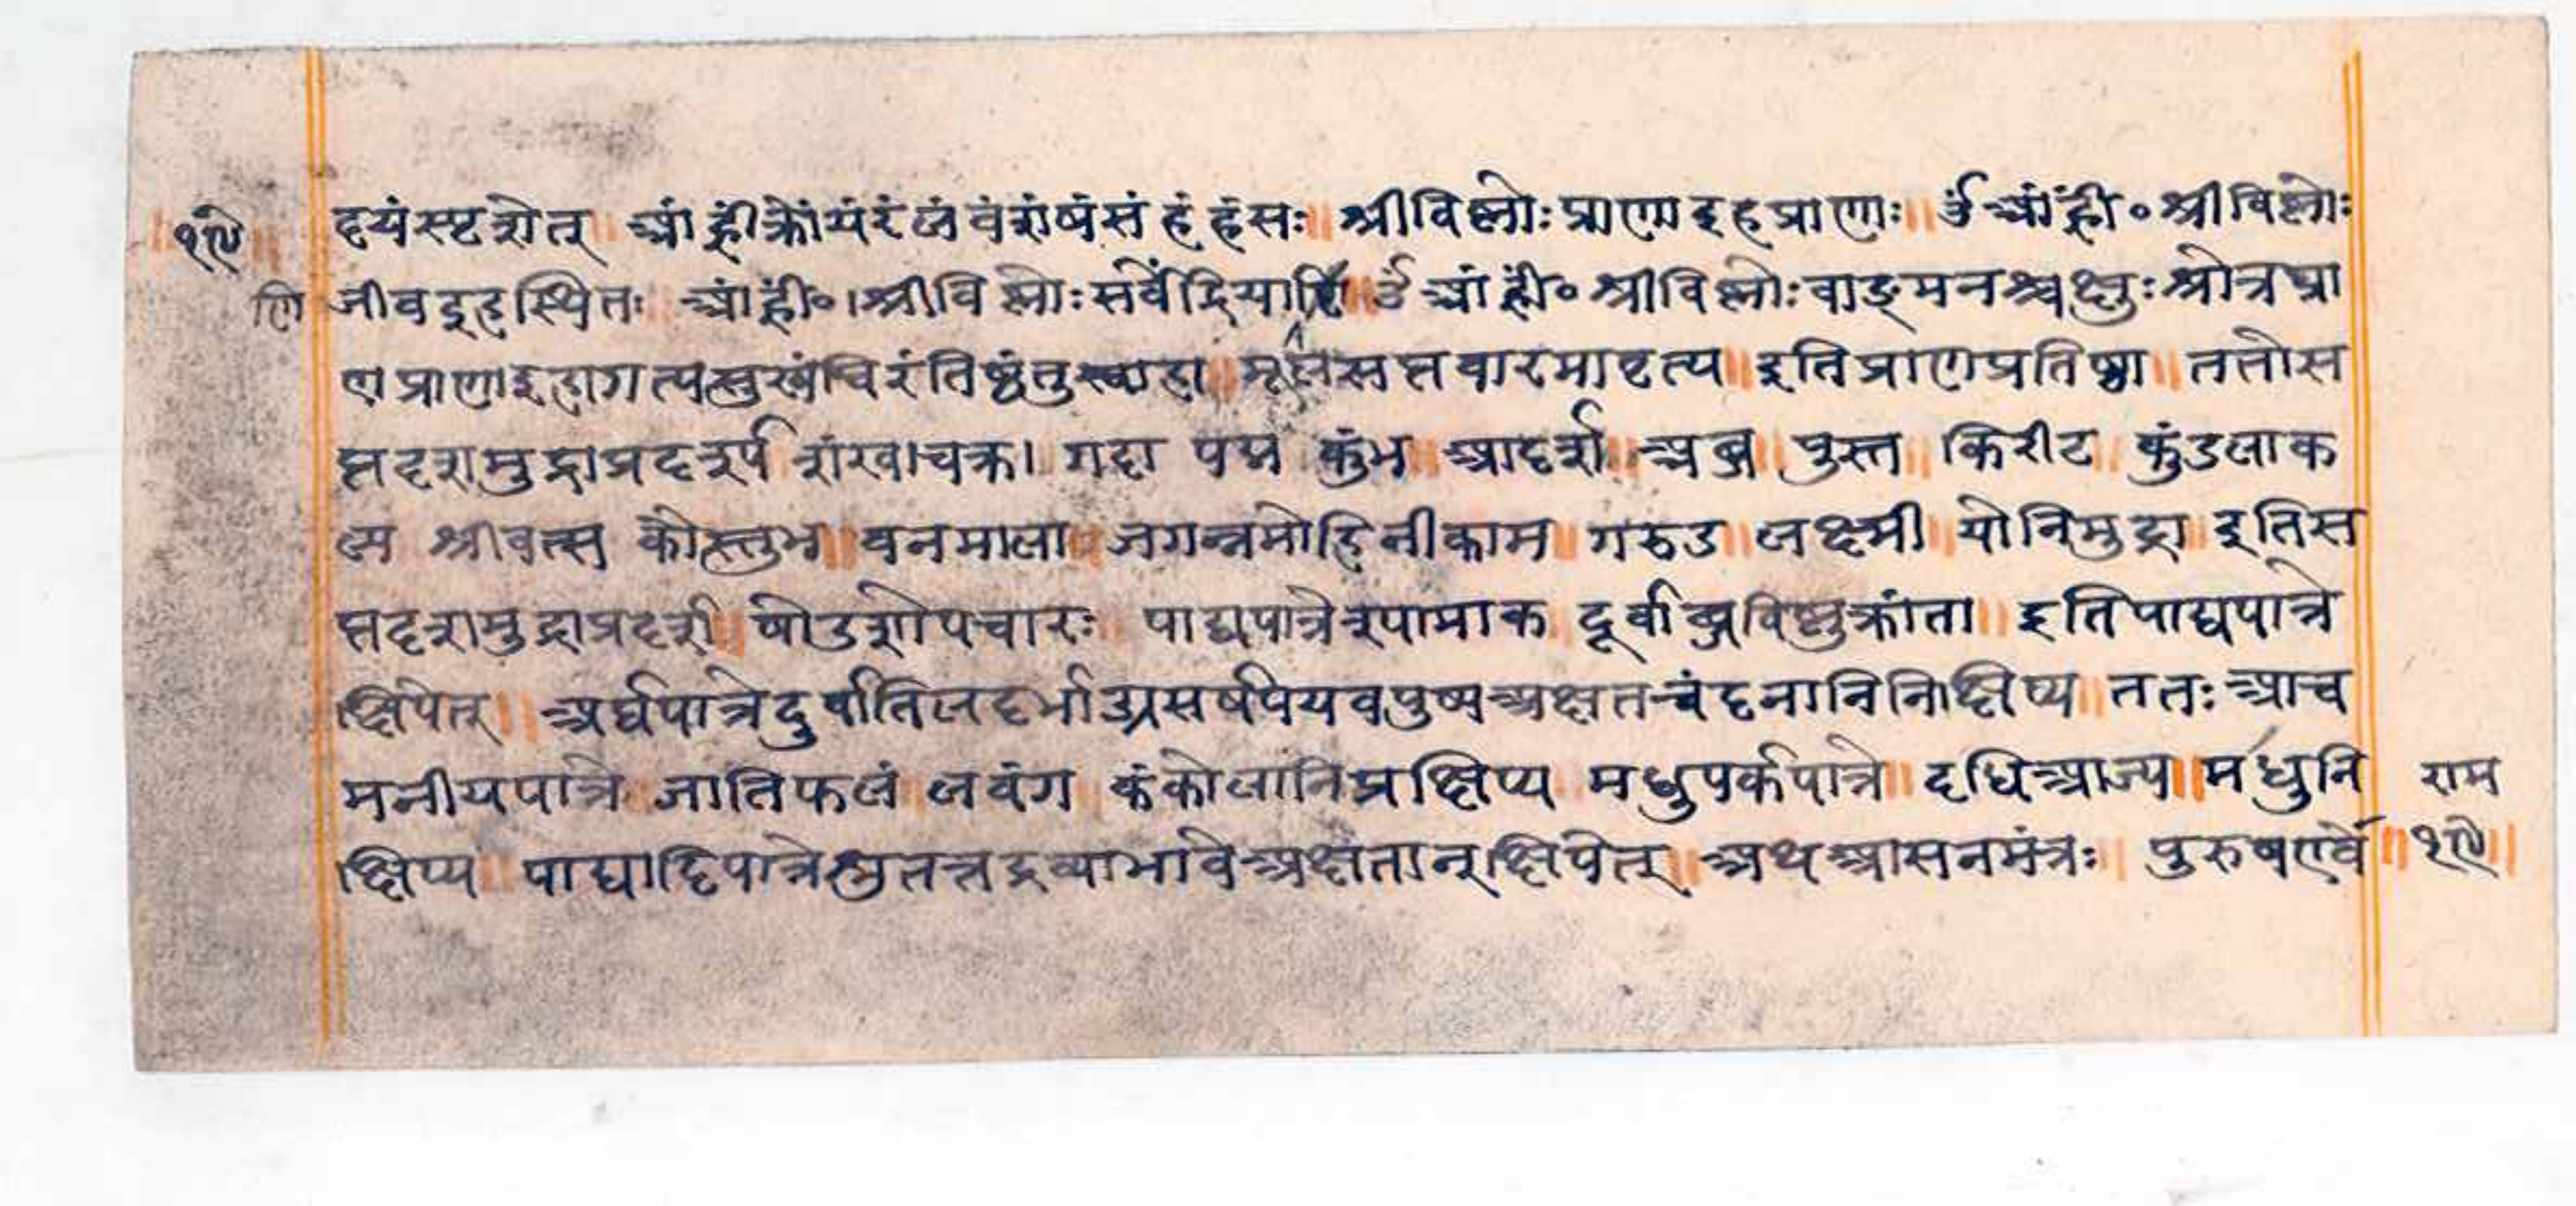 ॥१९॥ हयंस्पृशेत् ॥ आंह्रींक्रोंयंरंलंवंशंषंसंहंहंसः ॥ श्रीविष्णोः प्राणा इह प्राणाः ॥ ॐ आंह्रीं० श्रीविष्णोः
णि जीव इह स्थितः ॥ आंह्रीं० । श्रीविष्णोः सर्वेंद्रियाणि ॥ ॐ आंह्रीं० श्रीविष्णोः वाङ्मनश्चक्षुः श्रोत्रघ्रा
णप्राणाइहागत्यसुखंचिरंतिष्ठंतुस्वाहा ॥ मूलंसप्तवारमावृत्य ॥ इतिप्राणप्रतिष्ठा ॥ ततोस
प्तदशमुद्राप्रदर्श्य शंख । चक्र । गदा पद्म कुंभ ॥ आदर्श ॥ अब्ज ॥ पुस्त ॥ किरीट ॥ कुंडलाक
ल्प श्रीवत्स कौस्तुभ ॥ वनमाला ॥ जगन्नमोहिनीकाम ॥ गरुड ॥ लक्ष्मी ॥ योनिमुद्रा ॥ इतिस
प्तदशमुद्राप्रदर्श ॥ षोडशोपचारः ॥ पाद्यपात्रेश्यामाक ॥ दूर्वाब्जविष्णुक्रांता ॥ इतिपाद्यपात्रे
क्षिपेत् ॥ अर्घपात्रेदुर्वातिलदर्भाग्रसर्षपयवपुष्पअक्षतचंदनानिनिक्षिप्य ॥ ततः आच
मनीयपात्रे ॥ जातिफलं ॥ लवंग ॥ कंकोलानिप्रक्षिप्य ॥ मधुपर्कपात्रे ॥ दधिआज्य ॥ मधुनि राम
क्षिप्य ॥ पाद्यादिपात्रेषुतत्तद्रव्याभावेअक्षतान्क्षिपेत् ॥ अथआसनमंत्रः ॥ पुरुषएवे ॥१९॥